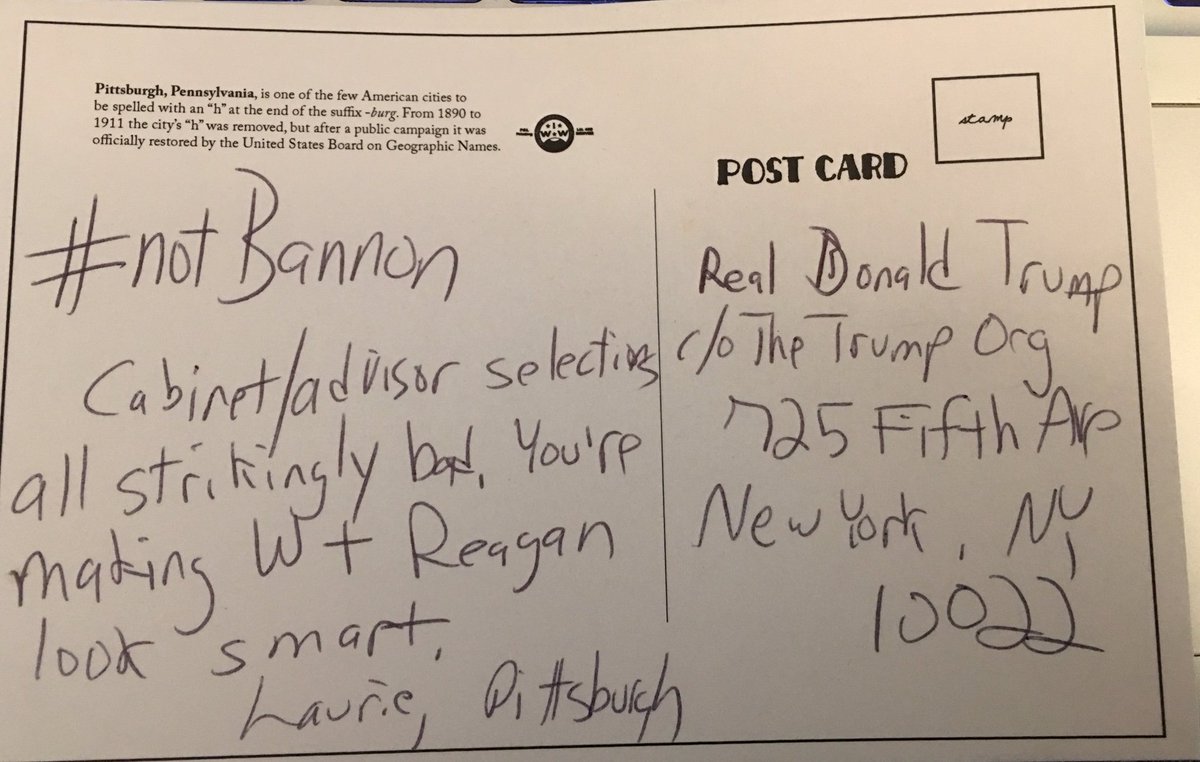 Pittsburgh, Pennsylvania, is one of the few American cities to
be spelled with an "h" at the end of the suffix -burg. From 1890 to
1911 the city's "h" was removed, but after a public campaign it was
officially restored by the United States Board on Geographic Names.
stamp
POST CARD
#notBannon
Cabinet/advisor selections
all strikingly bad. You're
making W + Reagan
look smart.
Laurie, Pittsburgh
Real Donald Trump
c/o The Trump Org
725 Fifth Ave
New York, NY
10022